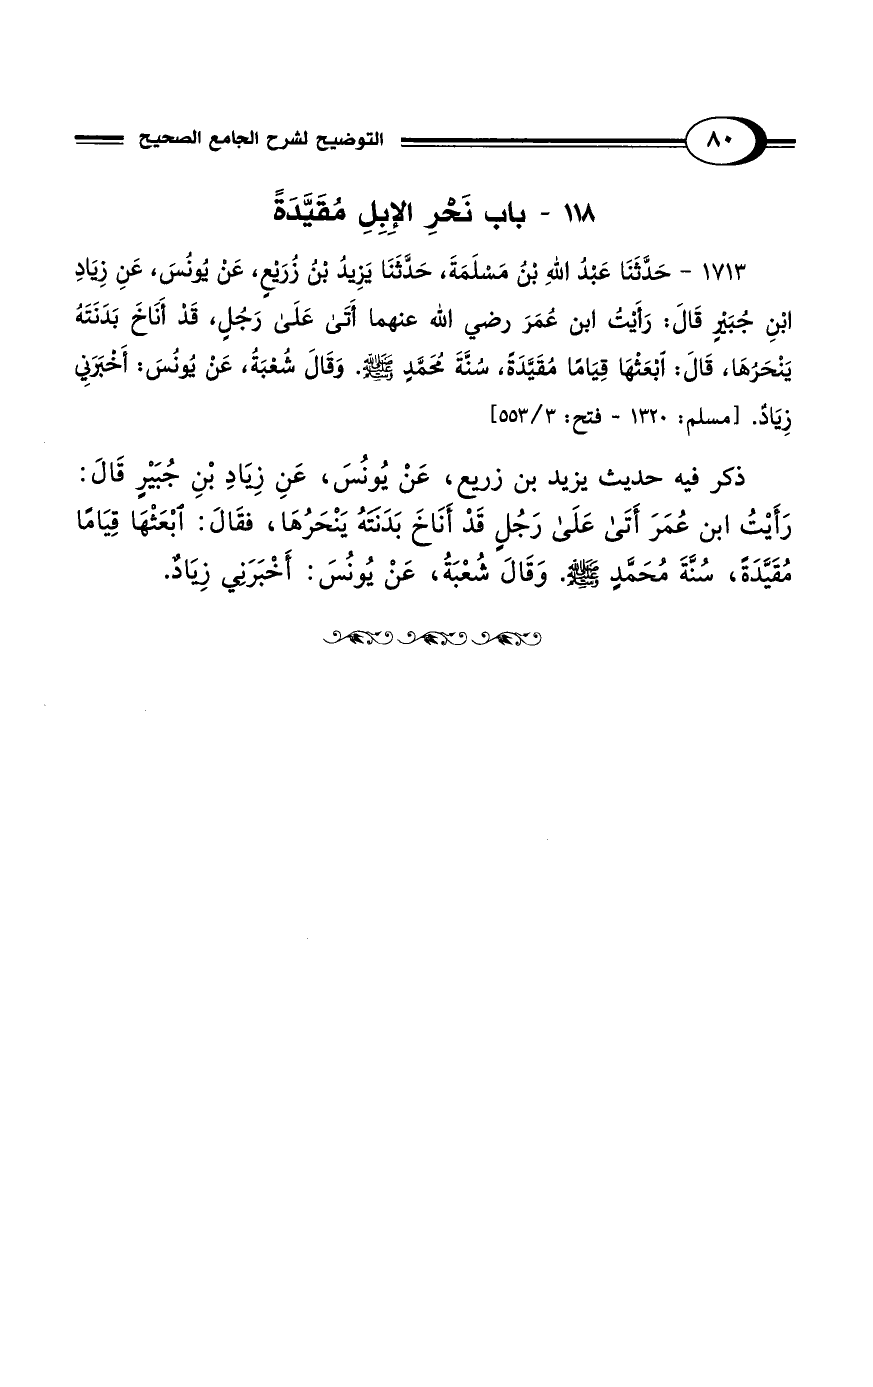 ٨٠ التوضيح لشرح الجامع الصحيح
١١٨ - باب نَحْرِ الإِبِلِ مُقَيَّدَةً
١٧١٣ - حَدَّثَنَا عَبْدُ اللهِ بْنُ مَسْلَمَةَ، حَدَّثَنَا يَزِيدُ بْنُ زُرَيْعٍ، عَنْ يُونُسَ، عَنِ زِيَادِ
ابْنِ جُبَيْرٍ قَالَ: رَأَيْتُ ابن عُمَرَ رضي الله عنهما أَتَىٰ عَلَىٰ رَجُلٍ، قَدْ أَنَاخَ بَدَنَتَهُ
يَنْحَرُهَا، قَالَ: ٱبْعَثْهَا قِيَامًا مُقَيَّدَةً، سُنَّةَ مُحَمَّدٍ ﷺ. وَقَالَ شُعْبَةُ، عَنْ يُونُسَ: أَخْبَرَنِي
زِيَادٌ. [مسلم: ١٣٢٠ - فتح: ٣/ ٥٥٣]
ذكر فيه حديث يزيد بن زريع، عَنْ يُونُسَ، عَنِ زِيَادِ بْنِ جُبَيْرٍ قَالَ:
رَأَيْتُ ابن عُمَرَ أَتَىٰ عَلَىٰ رَجُلٍ قَدْ أَنَاخَ بَدَنَتَهُ يَنْحَرُهَا، فقَالَ: ٱبْعَثْهَا قِيَامًا
مُقَيَّدَةً، سُنَّةَ مُحَمَّدٍ ﷺ. وَقَالَ شُعْبَةُ، عَنْ يُونُسَ: أَخْبَرَنِي زِيَادٌ.